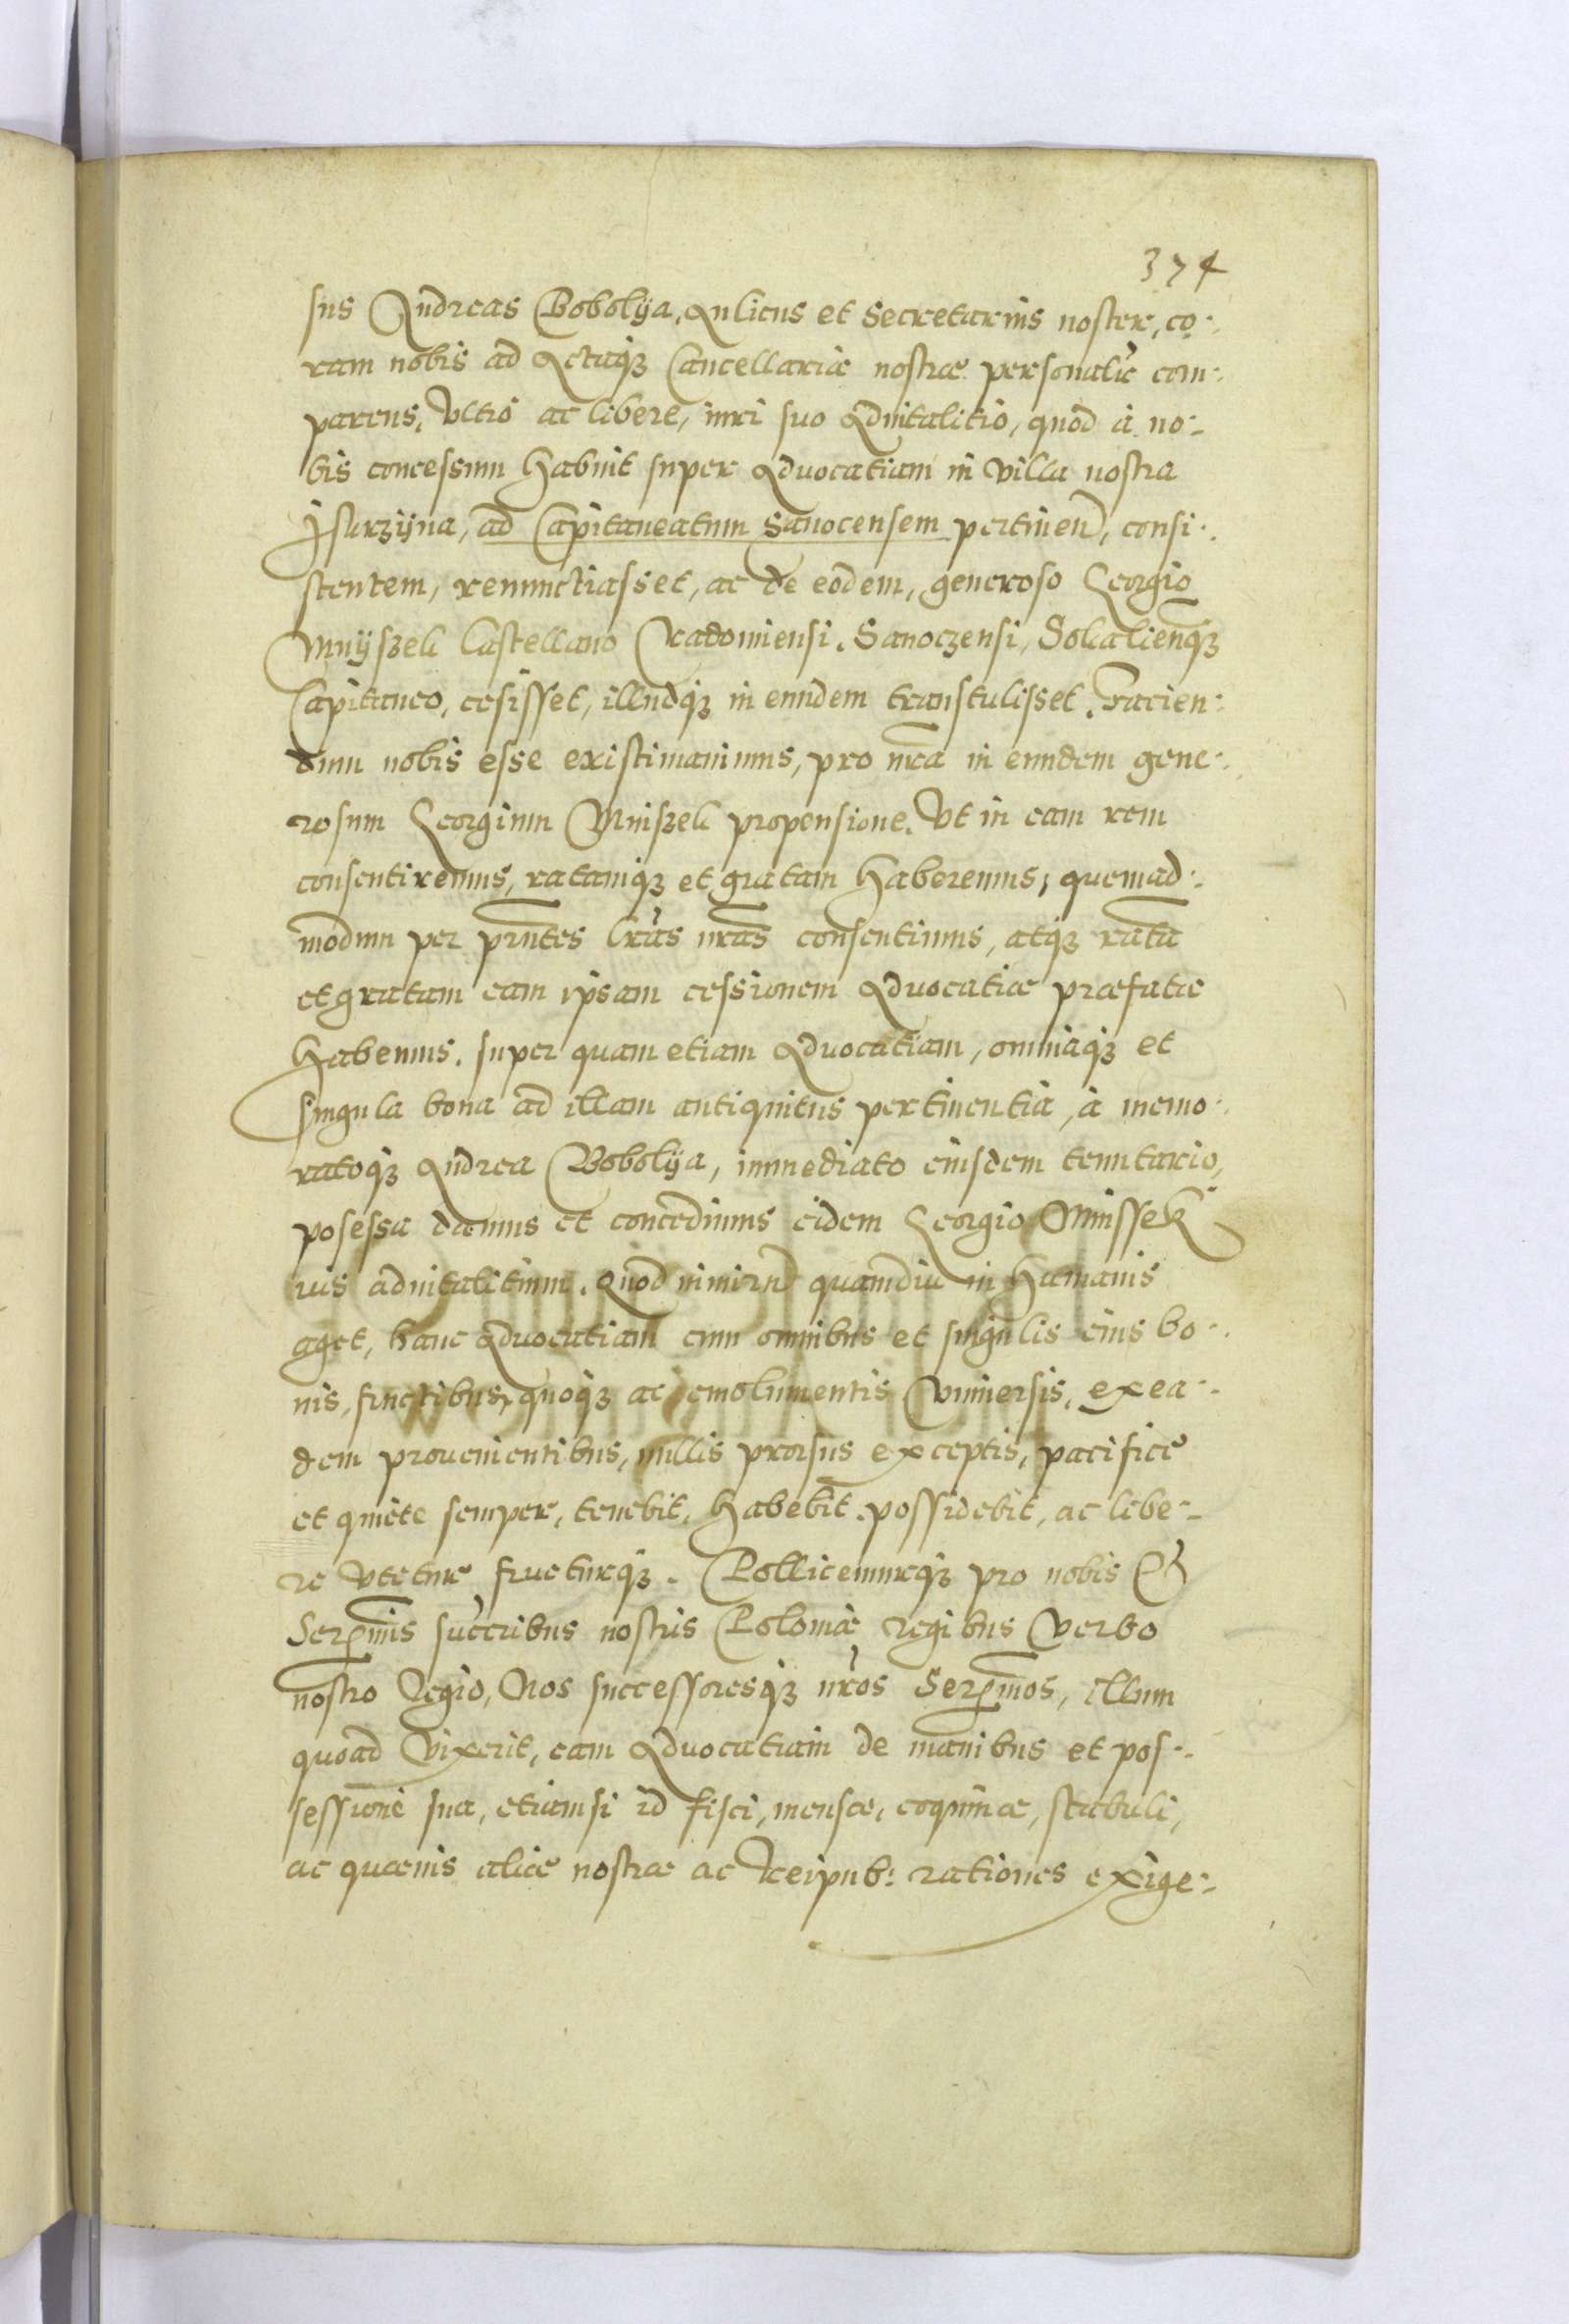 374
sus Andreas Bobolya, Aulicus et Secretarius noster, co-
ram nobis ad Actaq₃ Cancellariæ nostræ personalr̃ com-
parens, Vltro ac libere, iuri suo Aduitalitio, quod à no-
bis concessum habuit super Aduocatiam in villa nostra
Jsurziÿna, ad Capitaneatum Sanocensem pertinen̄, consi-
stentem, renunctiasset, ac de eodem, generoso Georgio
Mnÿszek Castellano Radomiensi. Sanoczensi, Sokaliēnq₃
Capitaneo, cesisset, illudq₃ in eundem transtulisset. Facien-
dum nobis esse existimauimus, pro nr̄a in eundem gene-
rosum Georgium Mniszek propensione. Vt in eam rem
consentiremus, ratamq₃ et gratam haberemus, quemad-
modum per prn̄tes Lr̄as nr̄as consentimus, atq₃ ratā
et gratam eam ipsam cessionem Aduocatiæ præfatæ
habemus. super quam etiam Aduocatiam, omniaq₃ et
singula bona ad illam antiquitus pertinentia, à memo-
ratoq₃ Andrea Bobolÿa, immediato eiusdem tenutario,
posessa damus et concedimus eidem Georgio Mnissek
ius aduitalitium. Quod nimirū quamdiu in humanis
aget, hanc Aduocatiam cum omnibus et singulis eius bo-
nis, fructibus, quoq₃ ac emolumentis Vniuersis, ex ea-
dem prouenientibus, nullis prorsus exceptis, pacifice
et quiete semper, tenebit, habebit. possidebit, ac libe-
re Vtetur frueturq₃. Pollicemurq₃ pro nobis &
Serp̄mis succribus nostris Poloniæ regibus Verbo
nostro Regio, Nos successoresq₃ nr̄os Serp̄mos, illum
quoad Vixerit, eam Aduocatiam de manibus et pos-
sessione sua, etiamsi id fisci, mensæ, coquinæ, stabuli,
ac quæuis aliæ nostræ ac Reipub: rationes exige-